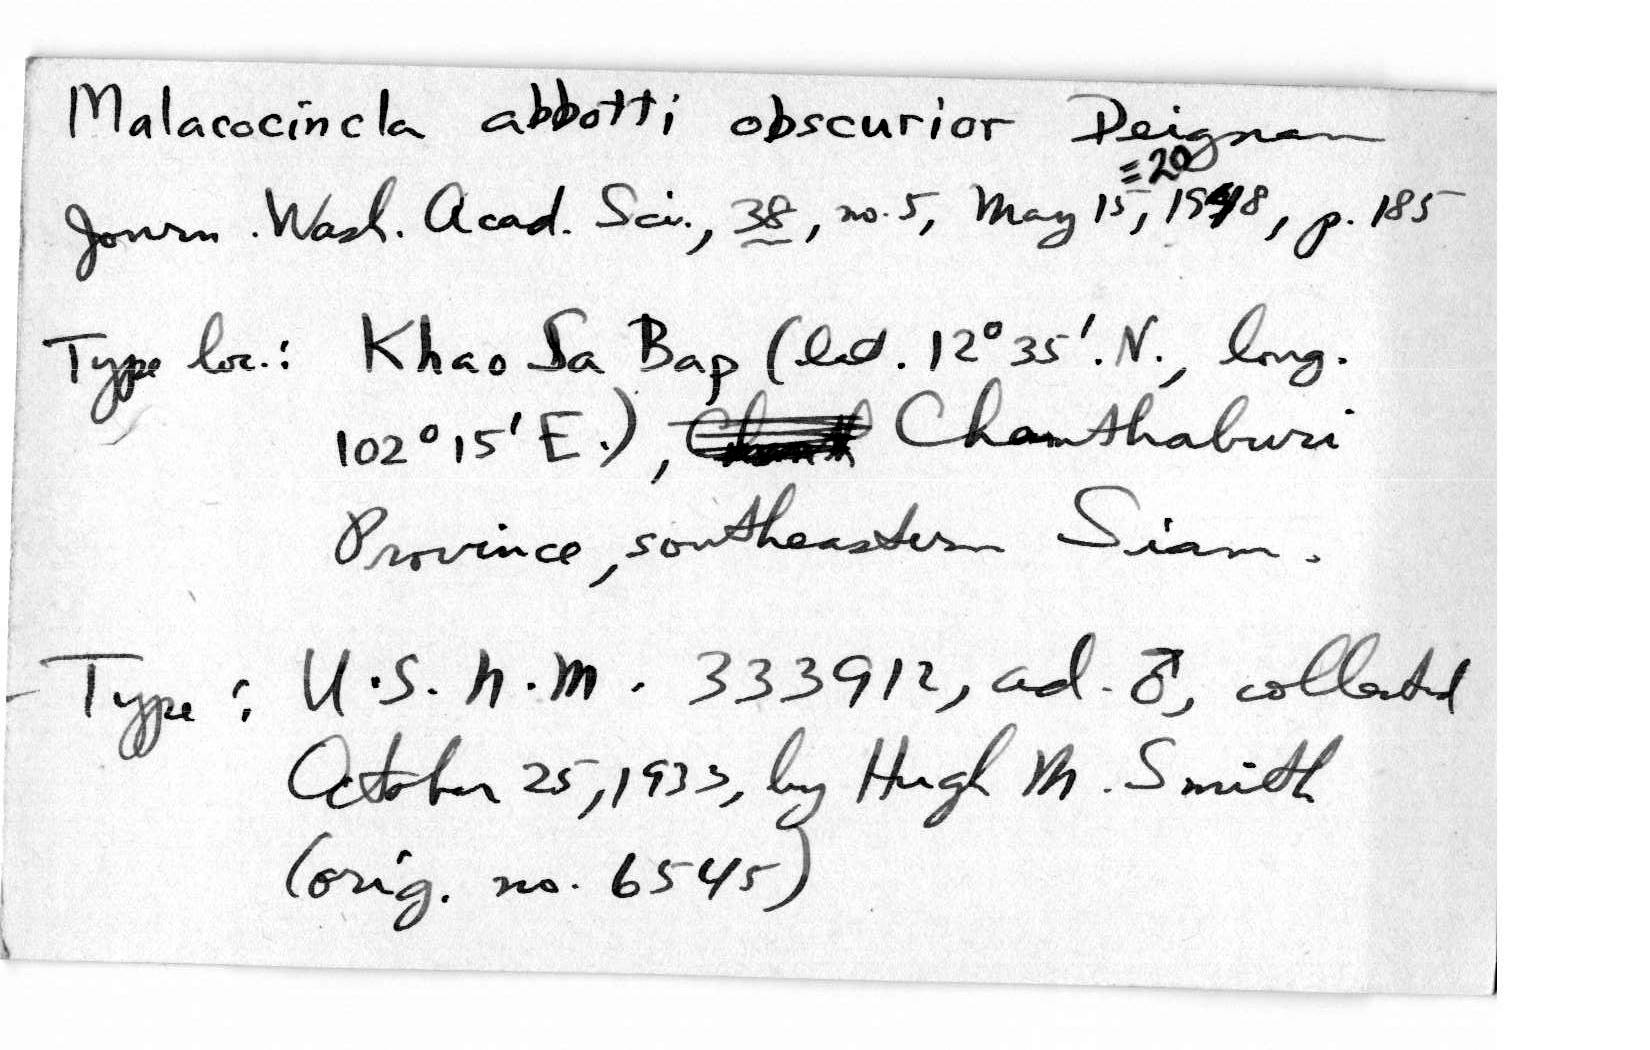 Malacocincla abbotti obscurior Deignan
=20
Journ. Wash. Acad. Sci., 38, no. 5, May 15, 1948, p. 185
Type loc.: Khao Sa Bap (lat. 12°35'. N., long.
102°15' E.), Chanthaburi
Province, southeastern Siam.
Type: U.S.N.M. 333912, ad. ♂, collected
October 25, 1933, by Hugh M. Smith
(orig. no. 6545)